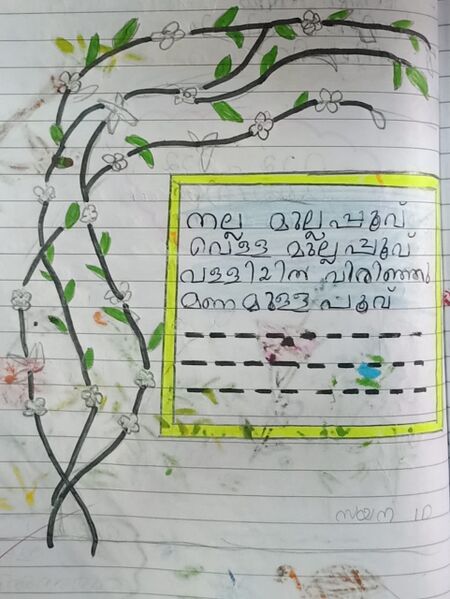 നല്ല മുല്ലപ്പൂവ്
വെള്ള മുല്ലപ്പൂവ്
വള്ളിയിത വിരിഞ്ഞു
മണമുള്ളപൂവ്